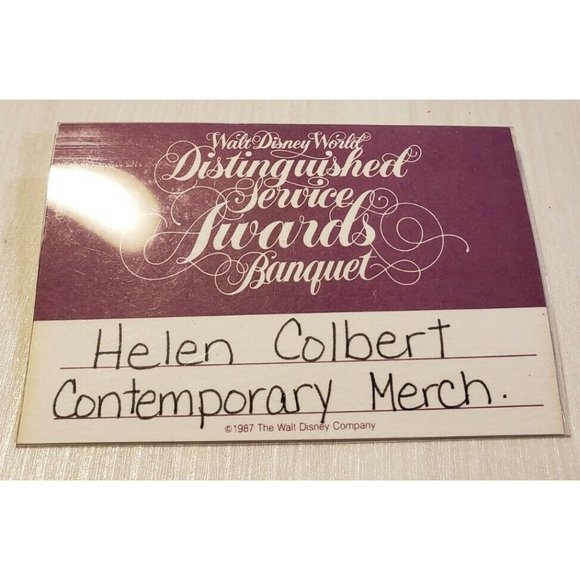 Walt Disney World
Distinguished
Service
Awards
Banquet
Helen Colbert
Contemporary Merch.
©1987 The Walt Disney Company